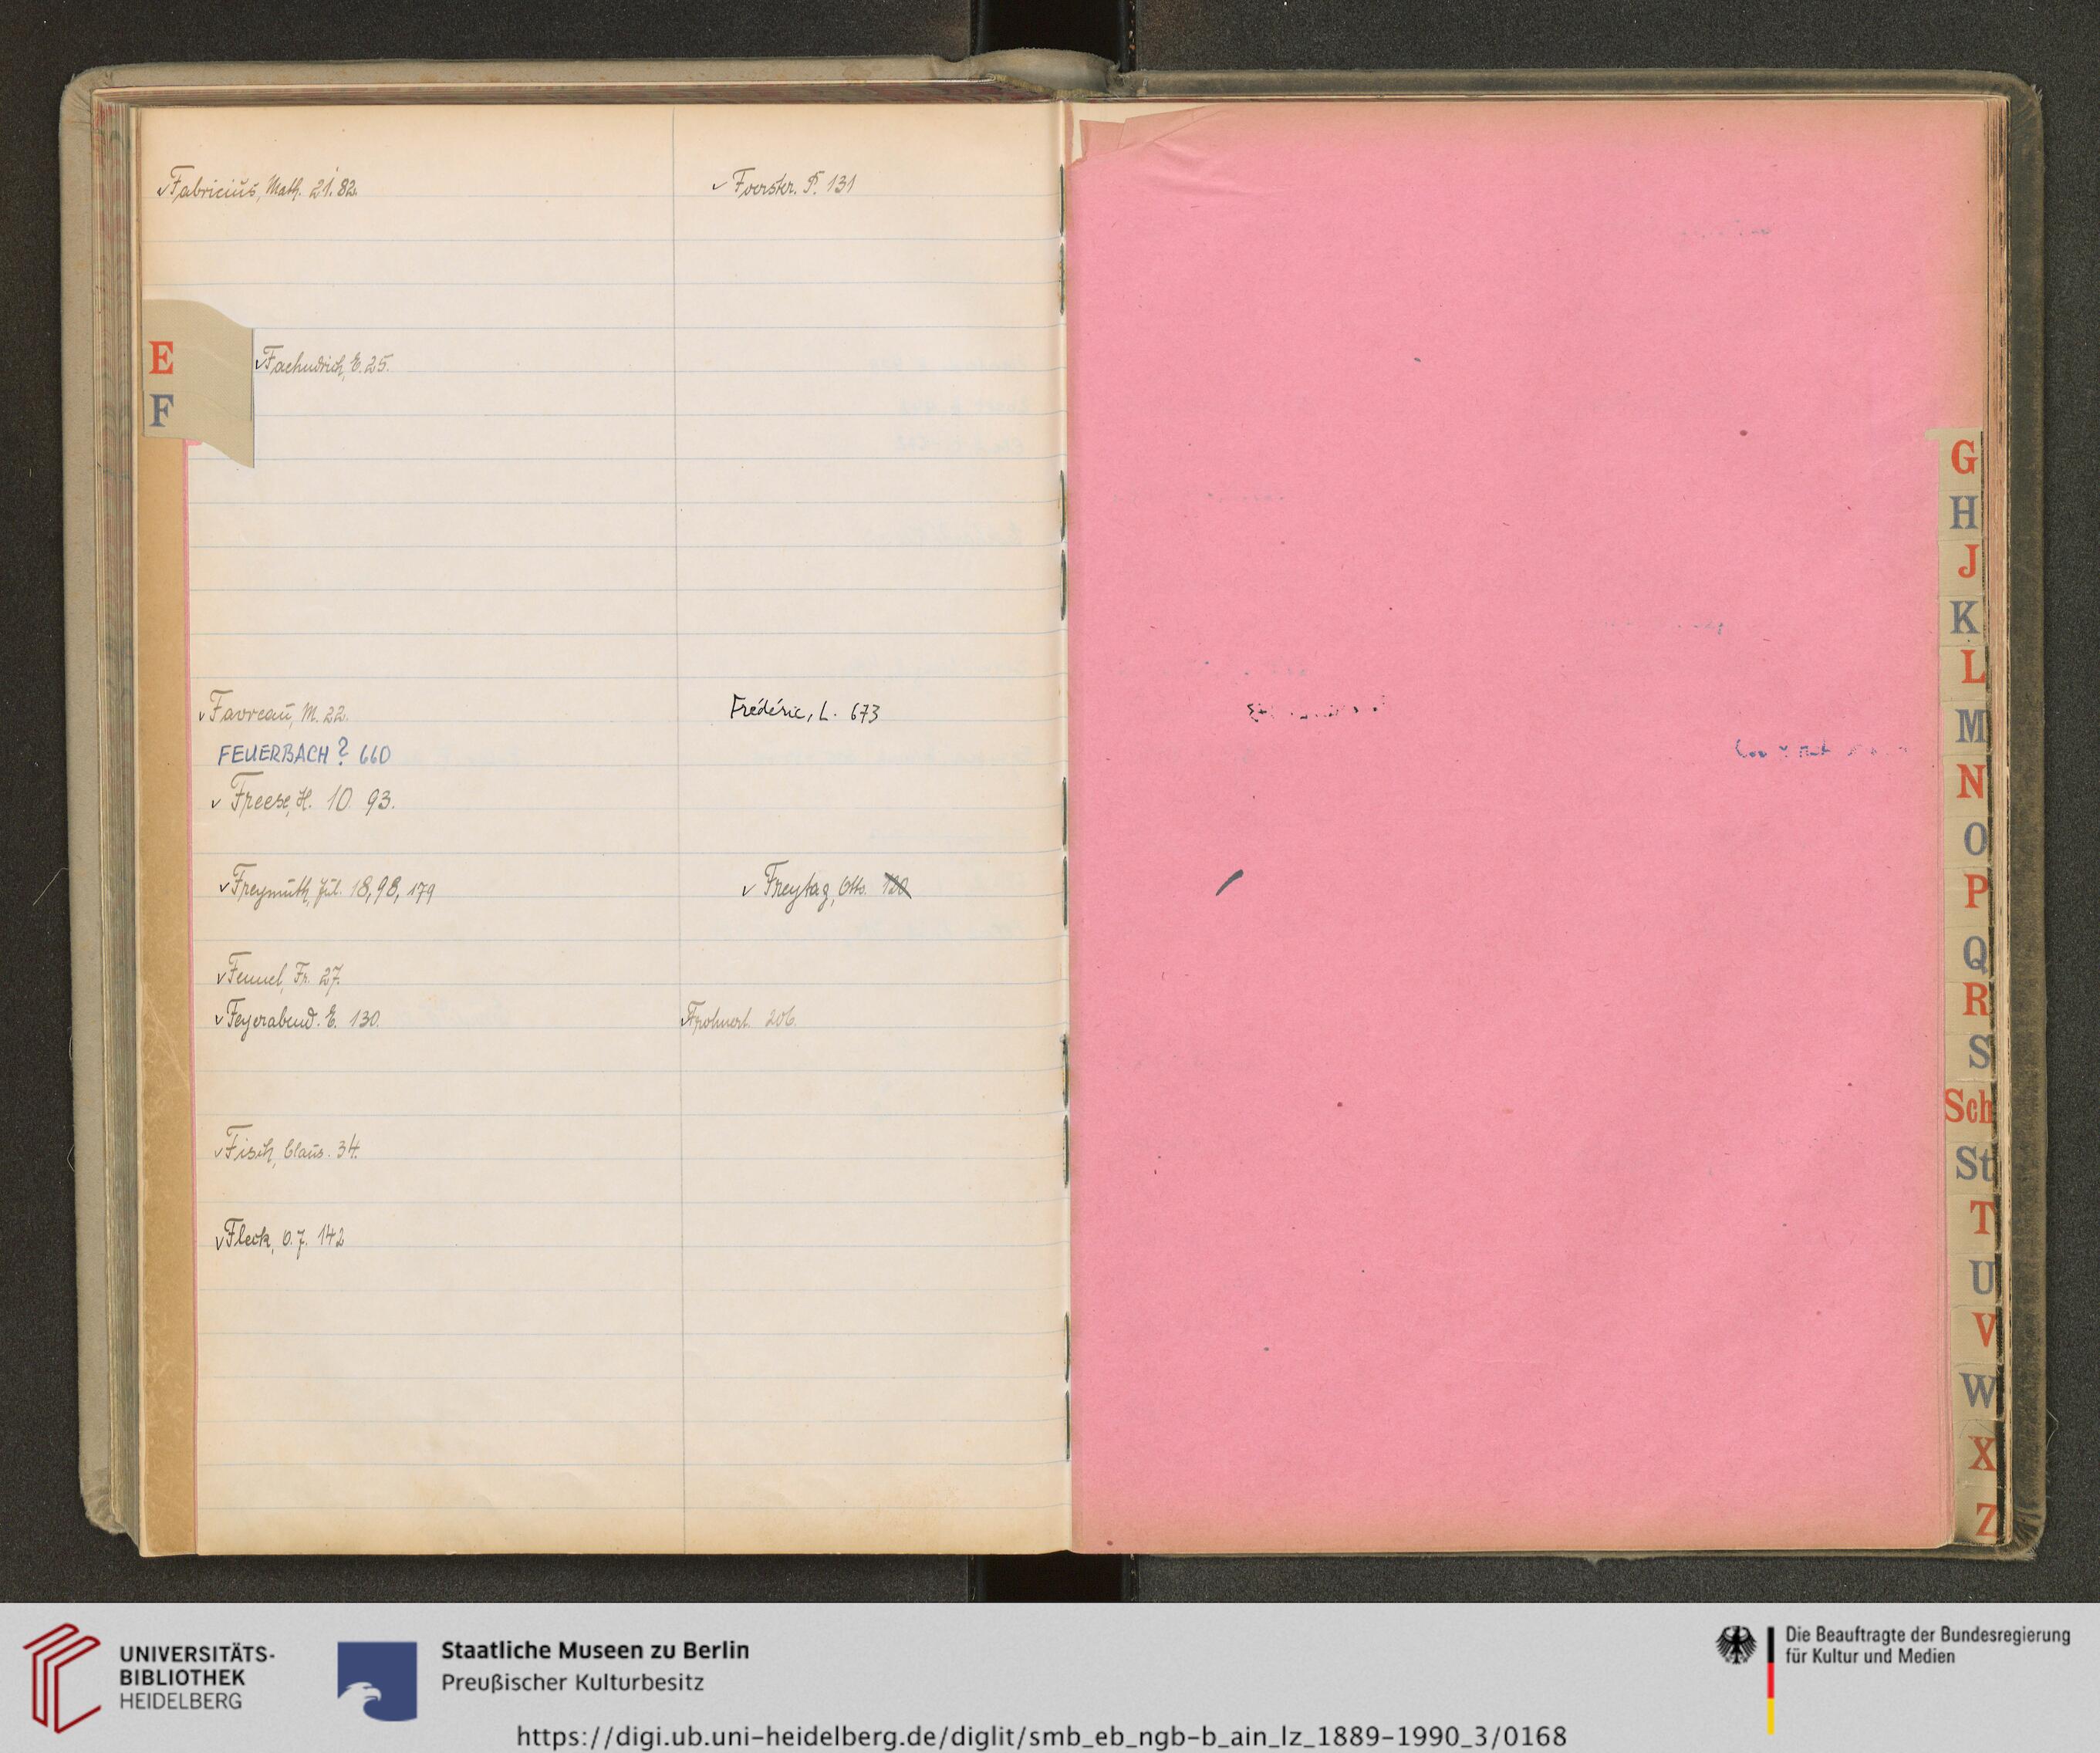 Fabricius, Math. 21. 82.
Foerster. P. 131
E
F
Faehndrich, E. 25.
Favreau, M. 22.
Frédéric, L. 673
FEUERBACH? 660
Freese, H. 10. 93.
Freymuth, Jul. 18, 98, 179
Freytag, Otto. 120
Fennel, Fr. 27.
Feyerabend. E. 130.
Frohnert. 206.
Fisch, Claus. 34.
Fleck, O. J. 142
G
H
J
K
L
M
N
O
P
Q
R
S
Sch
St
T
U
V
W
X
Z
UNIVERSITÄTS-
BIBLIOTHEK
HEIDELBERG
Staatliche Museen zu Berlin
Preußischer Kulturbesitz
Die Beauftragte der Bundesregierung
für Kultur und Medien
https://digi.ub.uni-heidelberg.de/diglit/smb_eb_ngb-b_ain_lz_1889-1990_3/0168